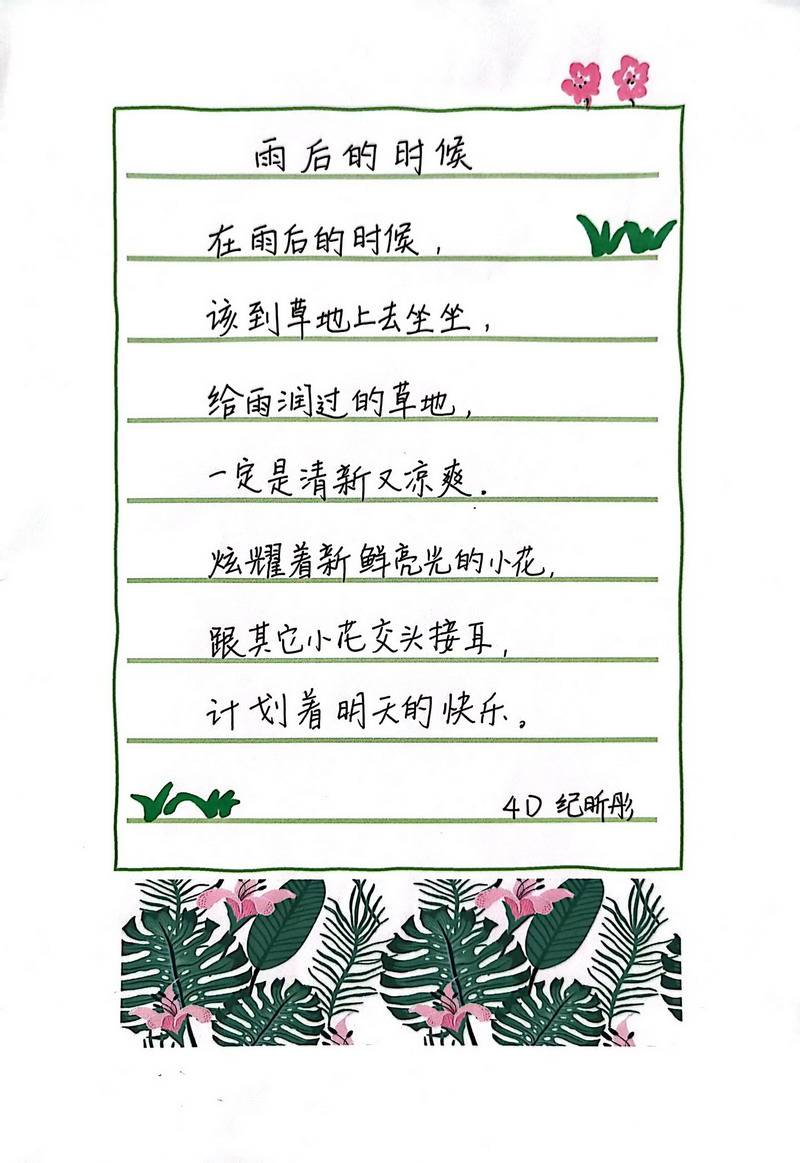 雨后的时候
在雨后的时候，
该到草地上去坐坐，
给雨润过的草地，
一定是清新又凉爽。
炫耀着新鲜亮光的小花，
跟其它小花交头接耳，
计划着明天的快乐。
4D 纪昕彤